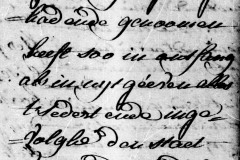 had ende genoomen
heeft soo in ontfang
als in uyt geeven alles
t sedert ende inge¬
volghe den staet